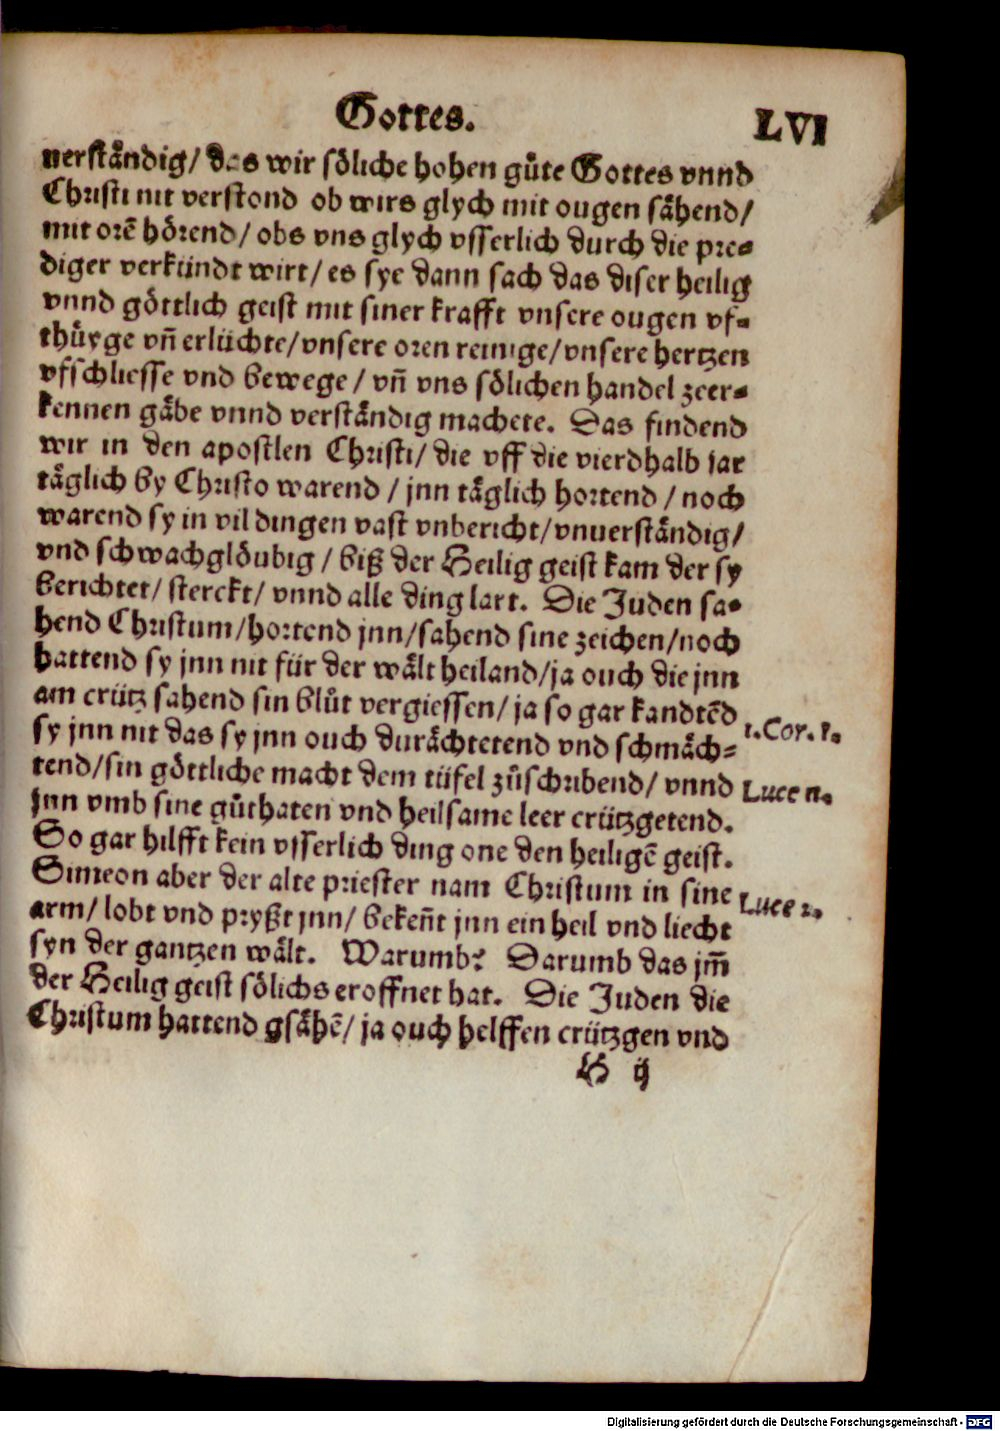 Gottes.
LVI
uerståndig/ das wir sőliche hohen gůte Gottes vnnd
Christi nit verstond ob wirs glych mit ougen såhend/
mit orē hőrend/ obs vns glych vsserlich durch die pre-
diger verkündt wirt/ es sye dann sach das diser heilig
vnnd gőttlich geist mit siner krafft vnsere ougen vf-
thůyge vn̄ erlüchte/vnsere oren reinige/vnsere hertzen
vfschliesse vnd bewege/ vn̄ vns sőlichen handel zeer-
kennen gåbe vnnd verståndig machete. Das findend
wir in den apostlen Christi/ die vff die vierdhalb jar
tåglich by Christo warend/ jnn tåglich hortend/ noch
warend sy in vil dingen vast vnbericht/vnuerståndig/
vnd schwachglőubig/ biß der Heilig geist kam der sy
berichtet/ sterckt/ vnnd alle ding lart. Die Juden sa-
hend Christum/hortend jnn/sahend sine zeichen/noch
hattend sy jnn nit für der wålt heiland/ja ouch die jnn
am crütz sahend sin blůt vergiessen/ ja so gar kandtēd
sy jnn nit das sy jnn ouch durächtetend vnd schmåch-
1.Cor.1.
tend/sin gőttliche macht dem tüfel zůschribend/ vnnd
Luce 11.
jnn vmb sine gůthaten vnd heilsame leer crützgetend.
So gar hilfft kein vsserlich ding one den heiligē geist.
Simeon aber der alte priester nam Christum in sine
Luce 2.
arm/ lobt vnd pryßt jnn/ beken̄t jnn ein heil vnd liecht
syn der gantzen wålt. Warumb? Darumb das jm̄
der Heilig geist sőlichs eroffnet hat. Die Juden die
Christum hattend gsåhē/ ja ouch helffen crützgen vnd
H ij
Digitalisierung gefördert durch die Deutsche Forschungsgemeinschaft - DFG